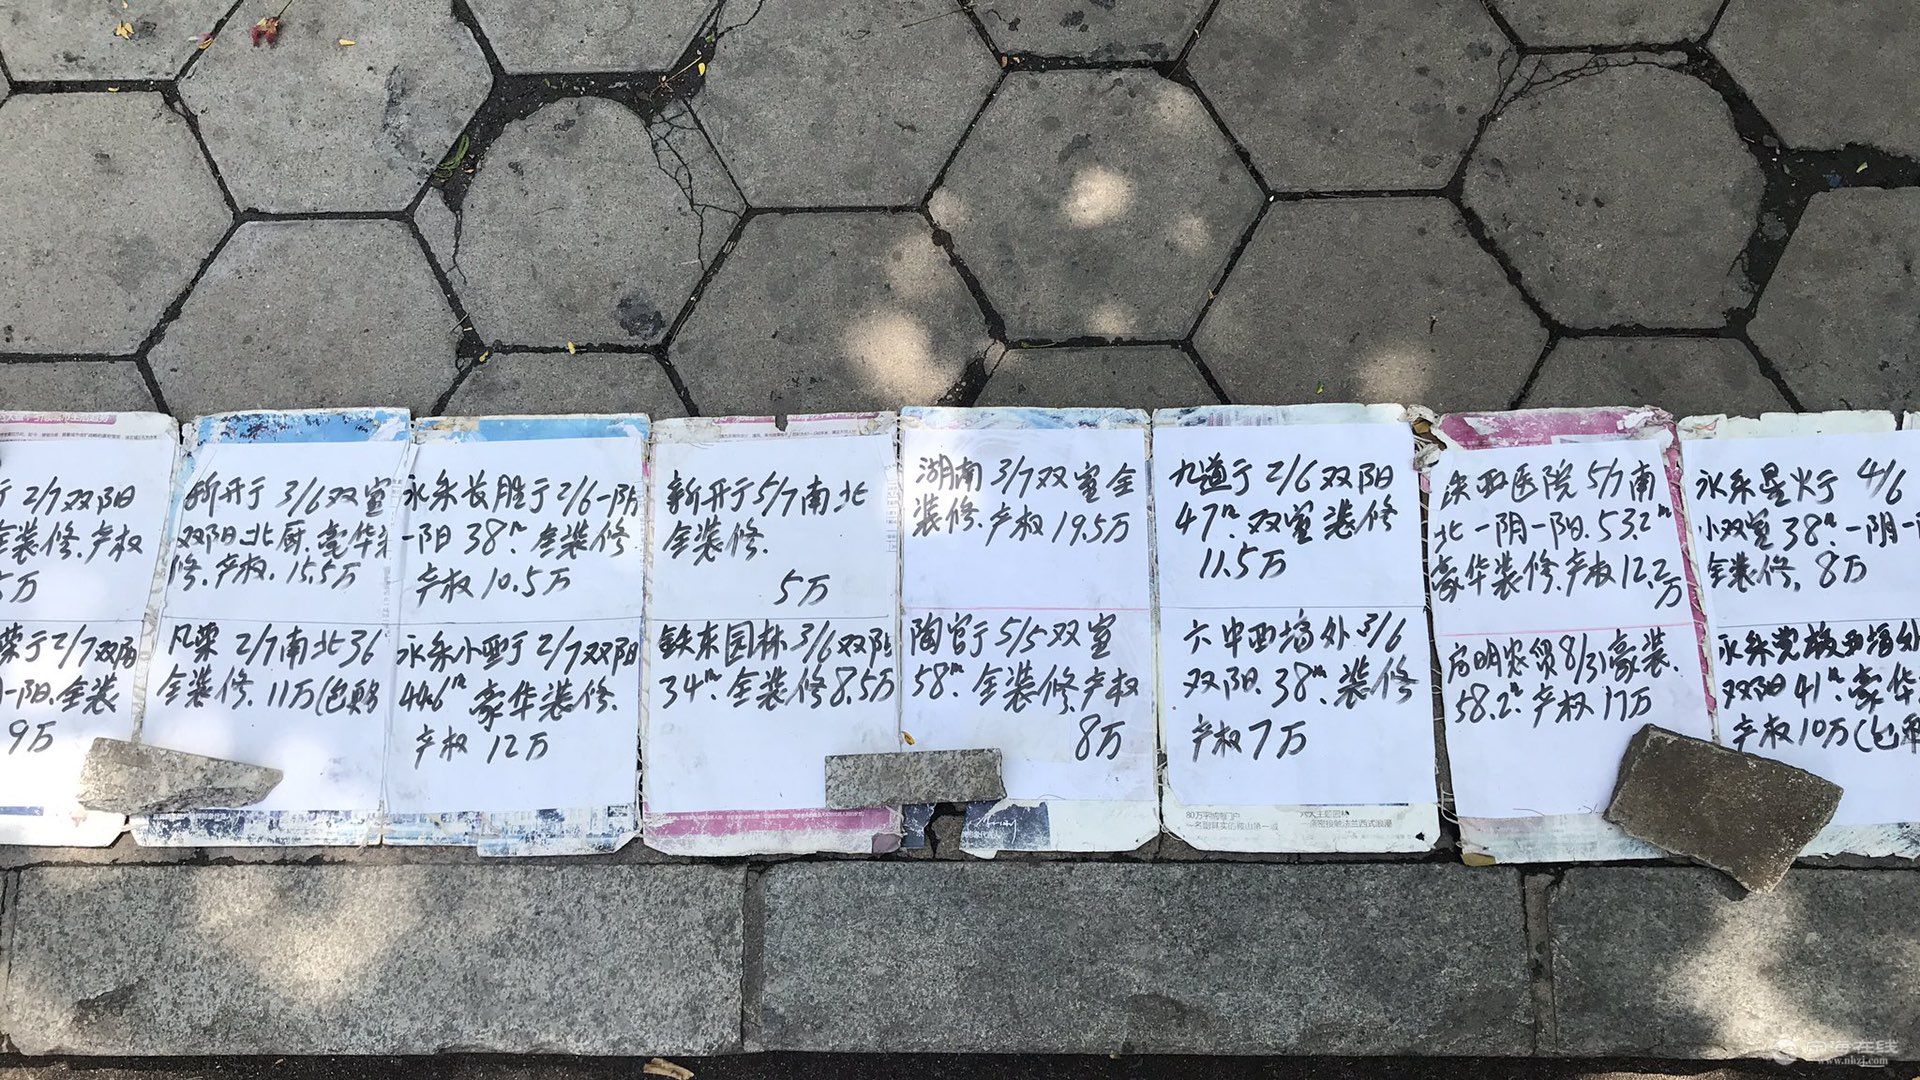 2/7双阳
全装修.产权
5万
荣于2/7双阳
一阳.全装
9万
新开于 3/6双室
双阳.北厨.豪华装
修.产权.15.5万
凡梁 2/7南北36
全装修.11万(包
永乐长胜于2/6一阴
一阳38㎡.全装修
产权10.5万
永乐小型于2/7双阳
44.6㎡豪华装修.
产权 12万
新开于5/7南北
全装修.
5万
铁东园林3/6双阳
34㎡.全装修8.5万
湖南 3/7双室全
装修.产权19.5万
陶官于5/5双室
58㎡.全装修.产权
8万
九道于2/6双阳
47㎡.双室装修
11.5万
六中西墙外3/6
双阳.38㎡.装修
产权7万
80万平成熟门户
一名副其实的鞍山第一城
医院5/7南
北一阴一阳.53.2㎡
豪华装修.产权12.2万
启明农贸8/31豪装.
58.2㎡.产权17万
永乐星火于 4/6
小双室38㎡.一阴一
全装修.8万
永乐党校西墙外
双阳41㎡.豪华
产权10万(包
南海在线
www.nhzj.com